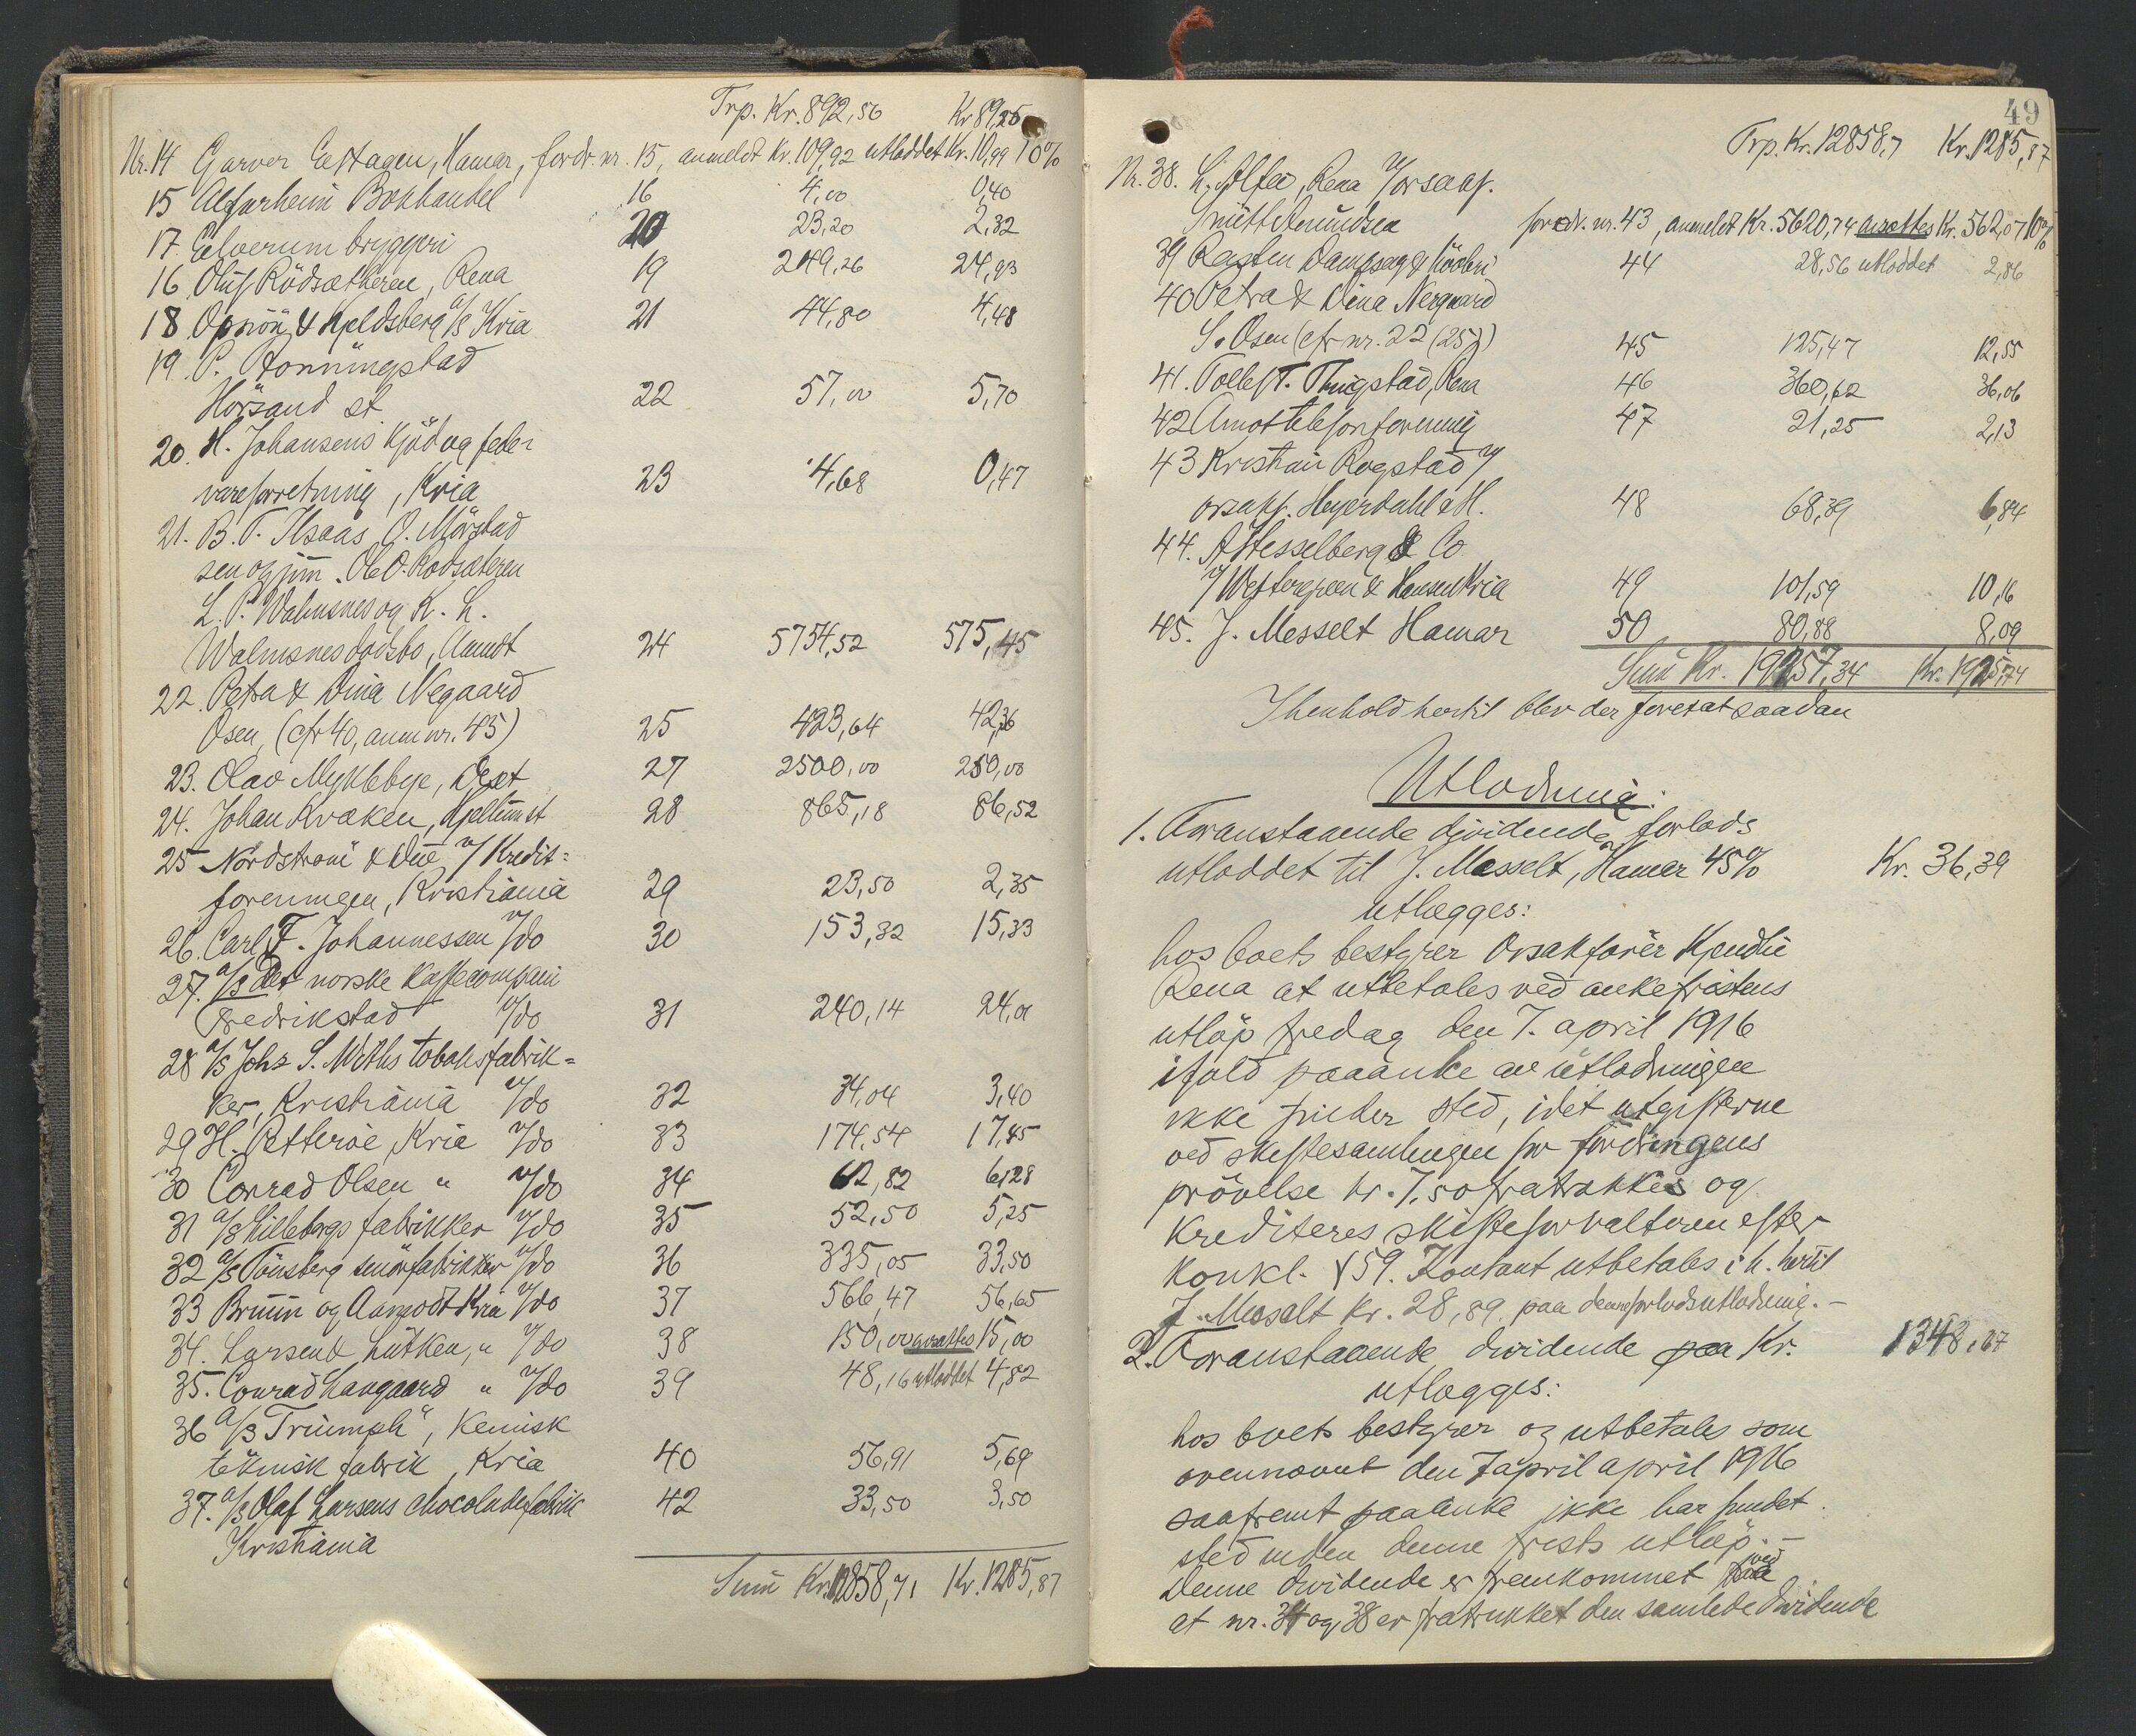 Trp. Kr. 892,56 Kr 89,26
Nr. 14 Garver Hamar, fordr. nr. 15, anmeldt Kr. 109,92 utloddet Kr. 10,99 10%
15 Alfarheim Bokhandel 16 4,00 0,40
17 Elverum bryggeri 20 23,20 2,32
16 Oluf Rödsætheren, Rena 19 249,26 24,93
18 Opsön & Kjeldsberg A/S Kria 21 44,80 4,48
19. P. Ronningstad
Hörsand st 22 57,00 5,70
20. H. Johansens Kjöd og fede-
vareforretning, Kria 23 4,68 0,47
21. B. T. Ilsaas O. Mörstad
sen og jun. Ole O. Rodsæteren
L. P. Walmsnes og K. L.
Walmsnes dödsbo, Aamodt 24 5754,52 575,45
22. Petra & Dina Negaard
Osen, (cfr 40, anm nr. 45) 25 423,64 42,36
23. Olav Myklebye, Deset 27 2500,00 250,00
24. Johan Kvæken, Hjellum st 28 865,18 86,52
25 Nordstrom & Due v/ Kredit-
foreningen, Kristiania 29 23,50 2,35
26. Carl F. Johannessen v/do 30 153,32 15,33
27. A/S Det norske Kaffecompani
Fredrikstad v/do 31 240,14 24,01
28 A/S Johs S. Wiiths tobaksfabrik-
ker, Kristiania v/do 32 34,04 3,40
29 H. Petterøe, Kria v/do 33 174,54 17,45
30 Conrad Olsen " v/do 34 62,82 6,28
31 A/S Lilleborgs fabrikker v/do 35 52,50 5,25
32 A/S Tönsberg smörfabrikker v/do 36 335,05 33,50
33 Bruun og Aamodt Kria v/do 37 566,47 56,65
34. Larsen & Lütken, " v/do 38 150,00 avsættes 15,00
35. Conrad Langaard " v/do 39 48,16 utloddet 4,82
36 A/S "Triumph", Kemisk
teknisk fabrik, Kria 40 56,91 5,69
37. A/S Olaf Larsens chocoladefabrik 42 33,50 3,50
Kristiania
Sum Kr. 12858,71 Kr. 1285,87
49
Trp. Kr. 12858,7 Kr. 1285,87
Nr. 38. L. Alfa, Rena v/orsakf.
Smitt Amundsen fordr. nr. 43, anmeldt Kr. 5620,74 avsættes Kr. 562,07 10%
39 Rasten Dampsag & Hövleri 44 28,56 utloddet 2,86
40 Petra & Dina Nergaard
S. Osen (cfr nr. 22 (25)) 45 125,47 12,55
41. Tollef T. Thingstad, Rena 46 360,62 36,06
42 Amot telefonforening 47 21,25 2,13
43 Kristian Rogstad v/
orsakf. Heyerdahl & H. 48 68,39 6,84
44. A Hesselberg & Co
v/ Westergreen & Hansen Kria 49 101,59 10,16
45. J. Messelt Hamar 50 80,88 8,09
Sum Kr. 19257,34 Kr. 1925,74
I henhold hertil blev der foretat saadan
Utlodning:
1. Foranstaaende dividende forlods
utloddet til J. Messelt, Hamar 45% Kr. 36,39
utlægges:
hos boets bestyrer Orsakförer Kjendlie
Rena at utbetales ved ankefristens
utlöp fredag den 7. april 1916
ifald paaanke av utlodningen
ikke finder sted, idet utgifterne
ved skiftesamlingen for fordringens
prövelse kr. 7,50 fratrækkes og
krediteres skifteforvalteren efter
Konkl. § 59. Kontant utbetales i h. hertil
J. Messelt Kr. 28,89 paa denne forlodsutlodning. -
2. Foranstaaende dividende paa Kr. 1348,67
utlægges:
hos boets bestyrer og utbetales som
ovennævnt den 7 april april 1916
saafremt paaanke ikke har fundet
sted inden denne frists utlöp. -
Denne dividende er fremkommet paa ved
at nr. 34 og 38 er fratrukket den samlede dividende